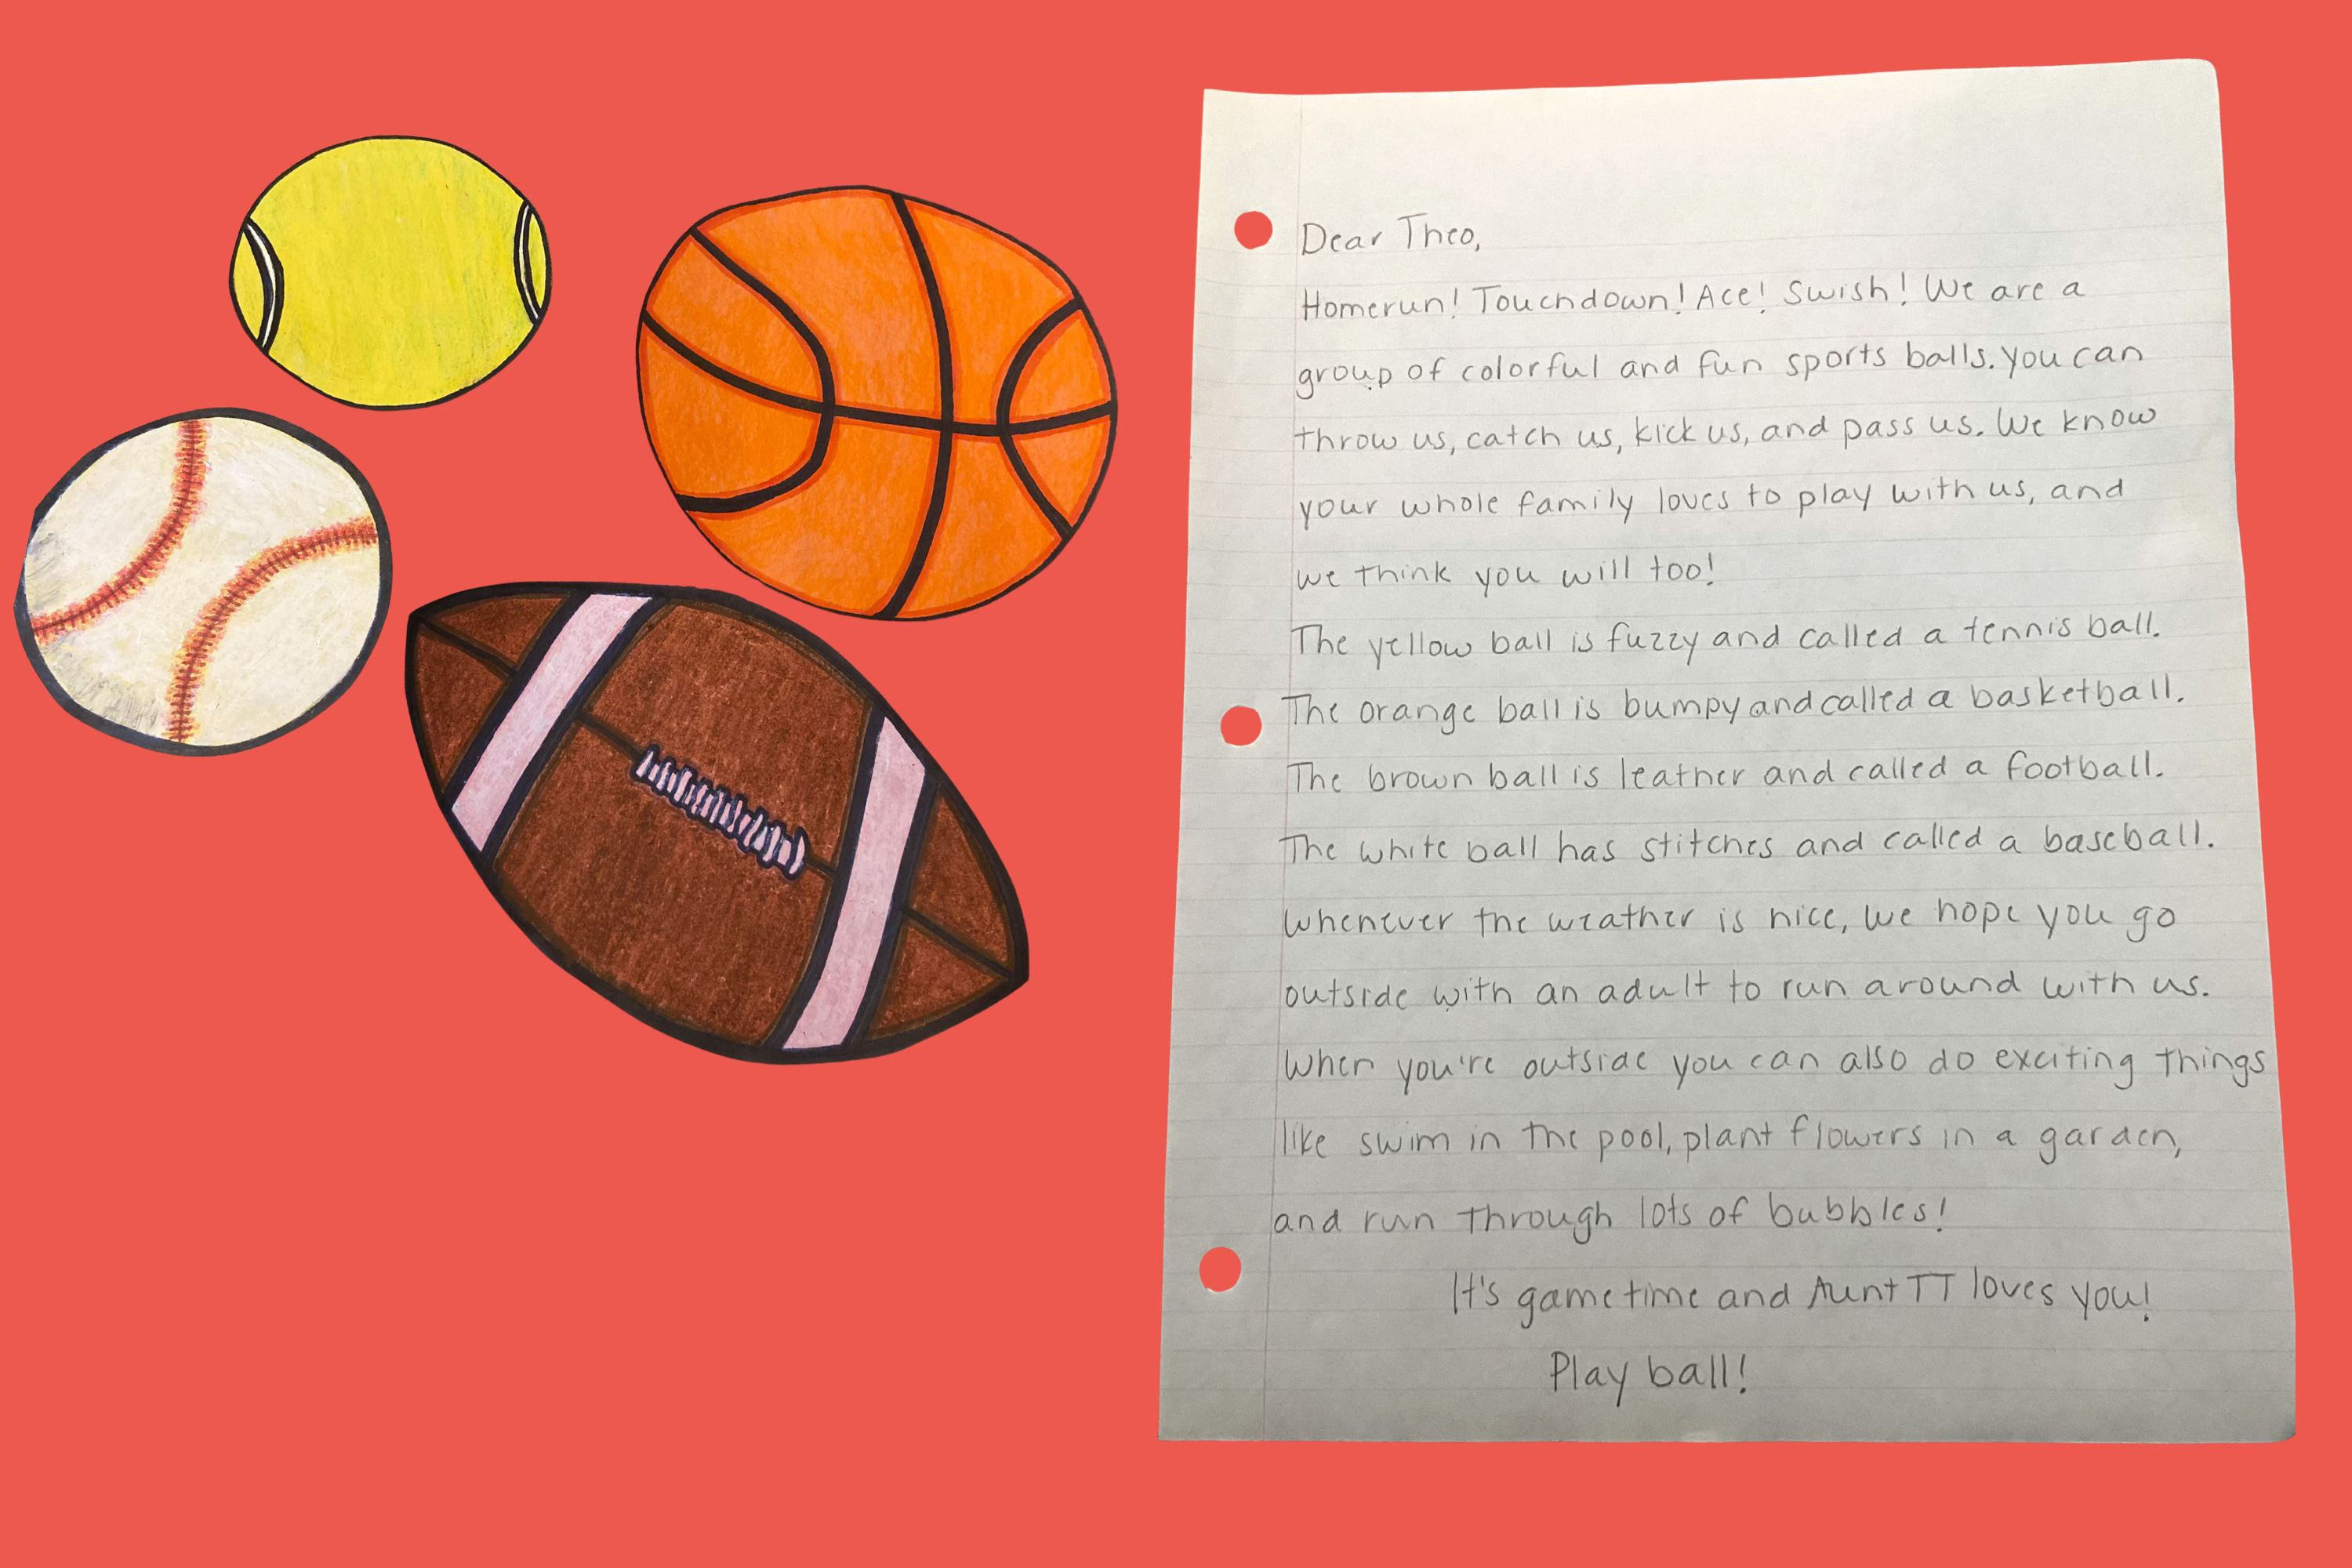 Dear Theo,
Homerun! Touchdown! Ace! Swish! We are a
group of colorful and fun sports balls. you can
throw us, catch us, kick us, and pass us. We know
your whole family loves to play with us, and
we think you will too!
The yellow ball is fuzzy and called a tennis ball.
The orange ball is bumpy and called a basketball.
The brown ball is leather and called a football.
The white ball has stitches and called a baseball.
Whenever the weather is nice, we hope you go
outside with an adult to run around with us.
When you're outside you can also do exciting things
like swim in the pool, plant flowers in a garden,
and run through lots of bubbles!
It's gametime and Aunt TT loves you!
Play ball!